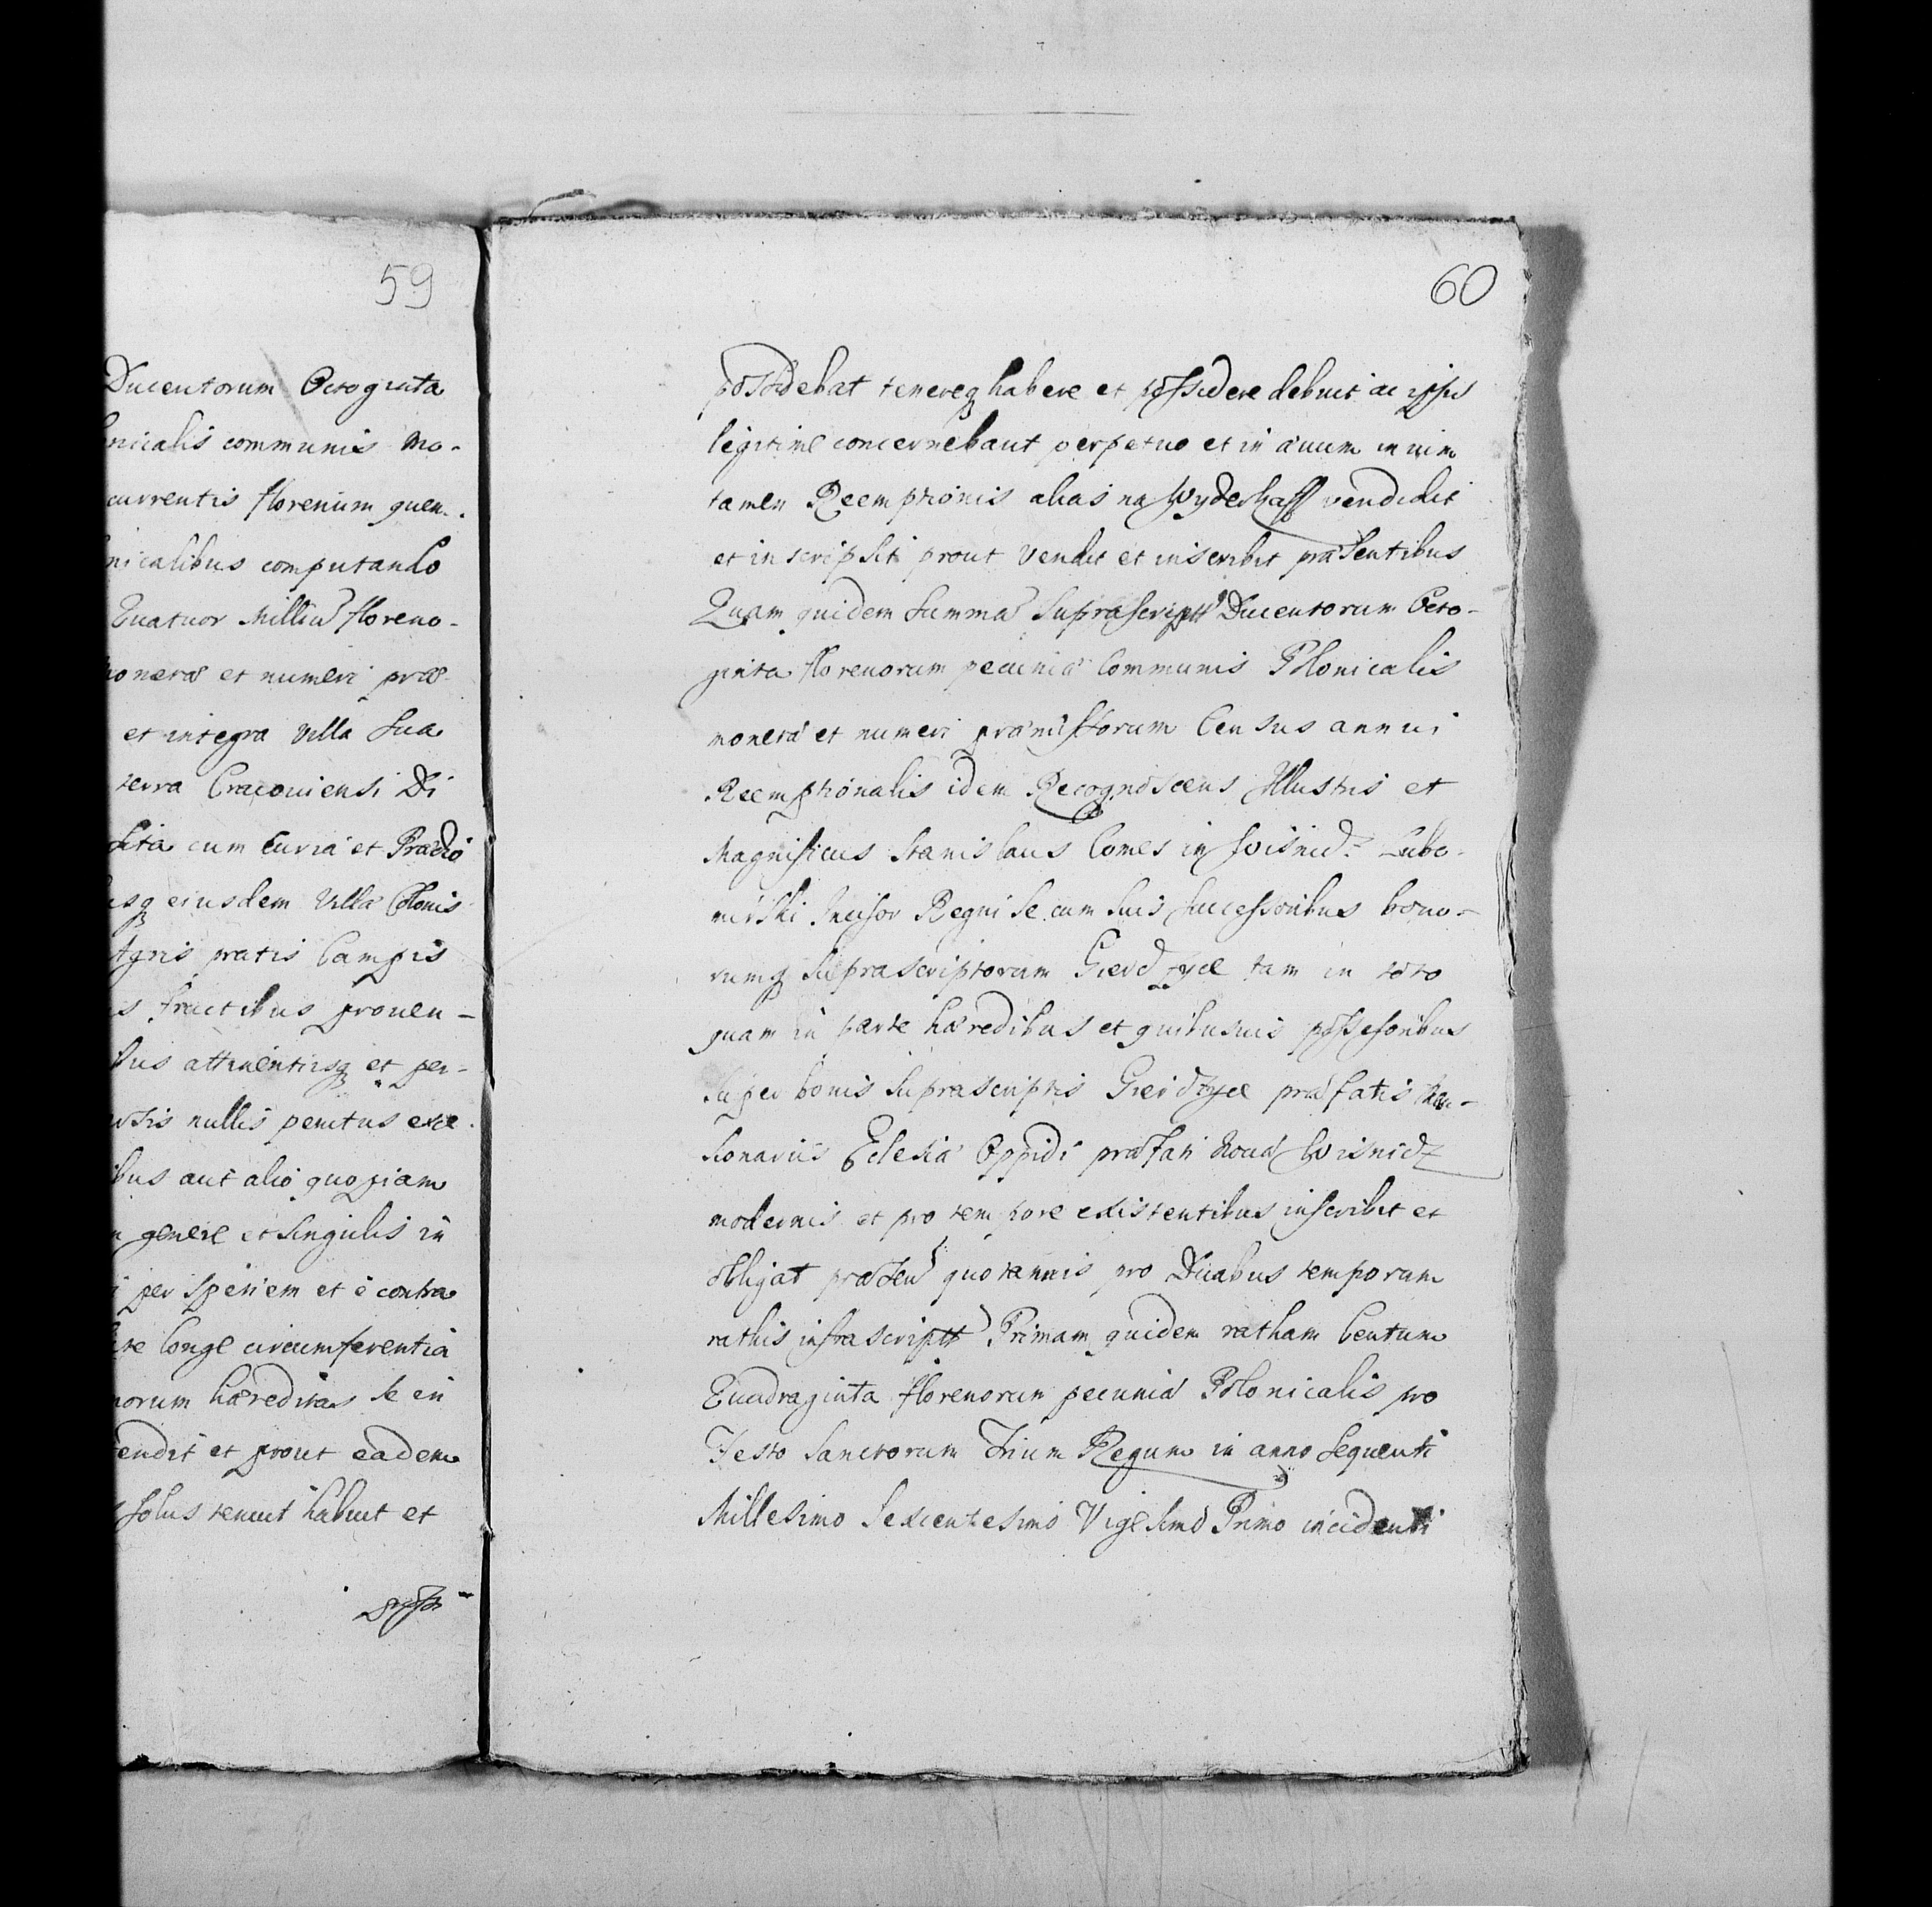 59
Ducentorum Octoginta
nicalis communis mo-
currentis florenum quen-
nicalibus computando
Quatuor Milliũ floreno-
monetæ et numeri præ-
et integra Villa Sua
terra Cracoviensi Di
sita cum Curia et Prædio
usq eiusdem Villæ Colonis
Agris pratis Campis
s fructibus proven-
bus attinentiisq et per-
rsis nullis penitus exce
ibus aut alio quopiam
n genere et Singulis in
i per Speciem et è contra
longe circumferentia
norum hæreditas se in
tendit et prout eadem
solus tenuit habuit et
possi-
60
possidebat tenereq habere et possidere debuit ac ipsus
legitime concernebant perpetuo et in ævum in vim
tamen Reemptionis alias na Wyderkaff vendidit
et inscripsit prout Vendit et inscribit præsentibus
Quam quidem Summã Suprascriptt Ducentorum Octo-
ginta florenorum pecuniæ Communis Polonicalis
monetæ et numeri præmissorum Census annui
Reemptionalis idem Recognoscens Illustris et
Magnificus Stanislaus Comes in Wisnicz Lubo-
mirski Incisor Regni Se cum Suis Successoribus bono-
rumq Suprascriptorum Gierdzyce tam in toto
quam in parte hæredibus et quibusvis possessoribus
Super bonis Suprascriptis Gierdzyce præfatis Man-
sionariis Eclesiæ Oppidi præfati Nova Wisnicz
modernis et pro tempore existentibus inscribit et
obligat præsen quotannis pro Duabus temporum
rathis infrascriptt Primam quidem ratham Centum
Quadraginta florenorum pecuniæ Polonicalis pro
Festo Sanctorum Trium Regum in anno Sequenti
Millesimo Sexcentesimo Vigesimo Primo incidenti